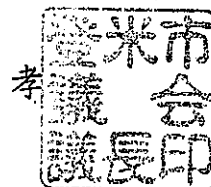 孝
登米市
議会
議長印